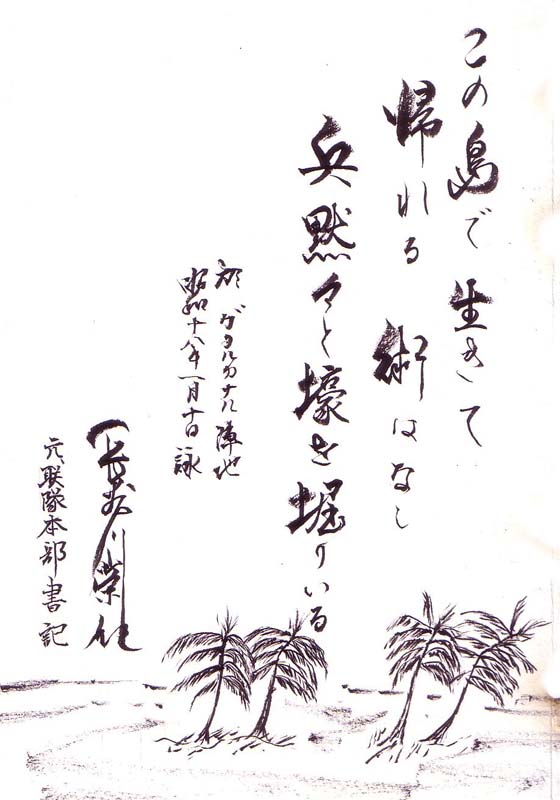 この島で生きて
帰れる術はなし
兵黙々と壕を掘りいる
於ガタルカナル陣地
昭和十八年一月十日詠
川榮
元、联隊本部書記